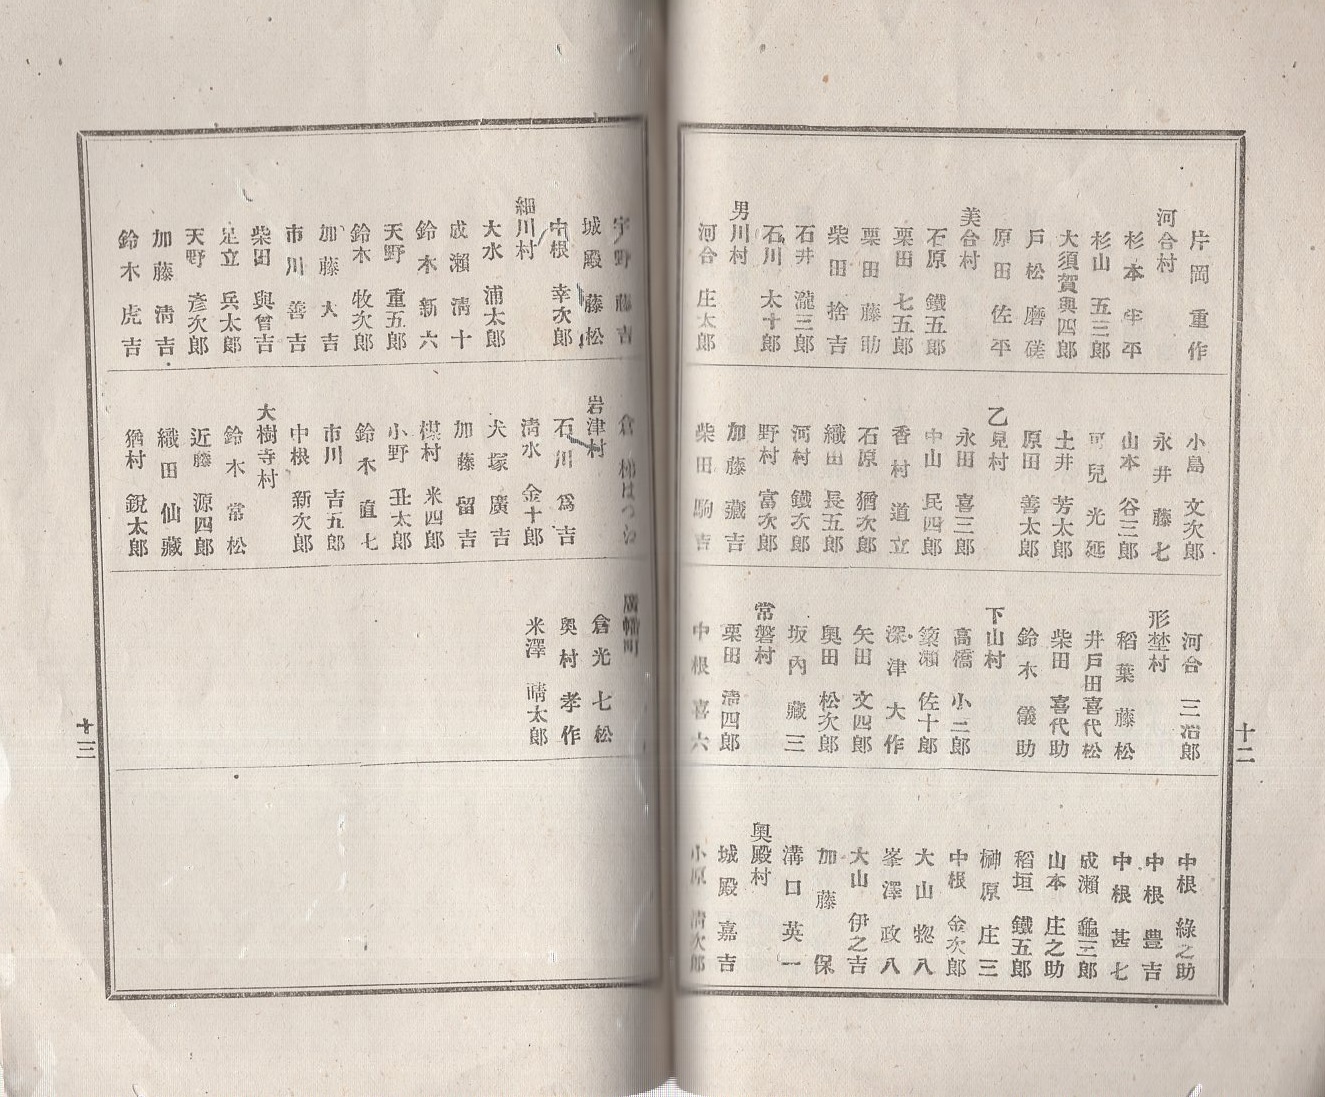 片岡重作
河合村
杉本半平
杉山五三郎
大須賀與四郎
戸松磨磋
原田佐平
美合村
石原鐵五郎
栗田七五郎
栗田藤助
柴田捨吉
石井瀧三郎
石川太十郎
男川村
河合庄太郎
小島文次郎
永井藤七
山本谷三郎
可兒光延
土井芳太郎
原田善太郎
乙見村
永田喜三郎
中山民四郎
香村道立
石原猶次郎
織田長五郎
河村鐵次郎
野村富次郎
加藤藏吉
柴田駒吉
河合三治郎
形埜村
稻葉藤松
井戸田喜代松
柴田喜代助
鈴木儀助
下山村
高橋小三郎
築瀬佐十郎
深津大作
矢田文四郎
奥田松次郎
坂内藏三
常磐村
栗田清四郎
中根喜六
中根綠之助
中根豊吉
中根甚七
成瀬龜三郎
山本庄之助
稻垣鐵五郎
榊原庄三
中根金次郎
大山惣八
峯澤政八
大山伊之吉
加藤保
溝口英一
奥殿村
城殿嘉吉
小原清次郎
十二
宇野藤吉
城殿藤松
中根幸次郎
細川村
大水浦太郎
成瀬清十
鈴木新六
天野重五郎
鈴木牧次郎
加藤大吉
市川善吉
柴田與曾吉
足立兵太郎
天野彦次郎
加藤清吉
鈴木虎吉
倉
岩津村
石川爲吉
清水金十郎
犬塚廣吉
加藤留吉
楳村米四郎
小野丑太郎
鈴木直七
市川吉五郎
中根新次郎
大樹寺村
鈴木常松
近藤源四郎
織田仙藏
猶村鋭太郎
廣幡町
倉光七松
奥村孝作
米澤晴太郎
十三